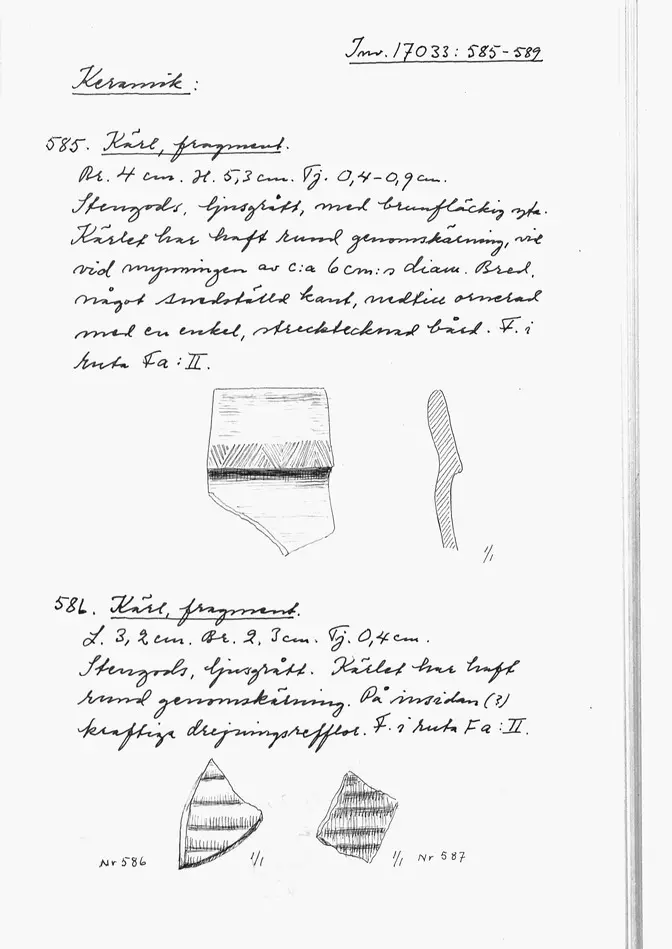 Inv. 17033: 585-589
Keramik:
585. Kärl, fragment.
Br. 4 cm. H. 5,3 cm. Tj. 0,4-0,9 cm.
Stengods, ljusgrått, med brunfläckig yta.
Kärlet har haft rund genomskärning,
vid mynningen av c:a 6 cm:s diam. Bred,
något snedställd kant, nedtill ornerad
med en enkel, strecktecknad bård. F. i
ruta Fa: II.
1/1
586. Kärl, fragment.
L. 3,2 cm. Br. 2,3 cm. Tj. 0,4 cm.
Stengods, ljusgrått. Kärlet har haft
rund genomskärning. På insidan (?)
kraftiga drejningsrefflor. F. i ruta Fa: II.
Nr 586
1/1
1/1
Nr 587